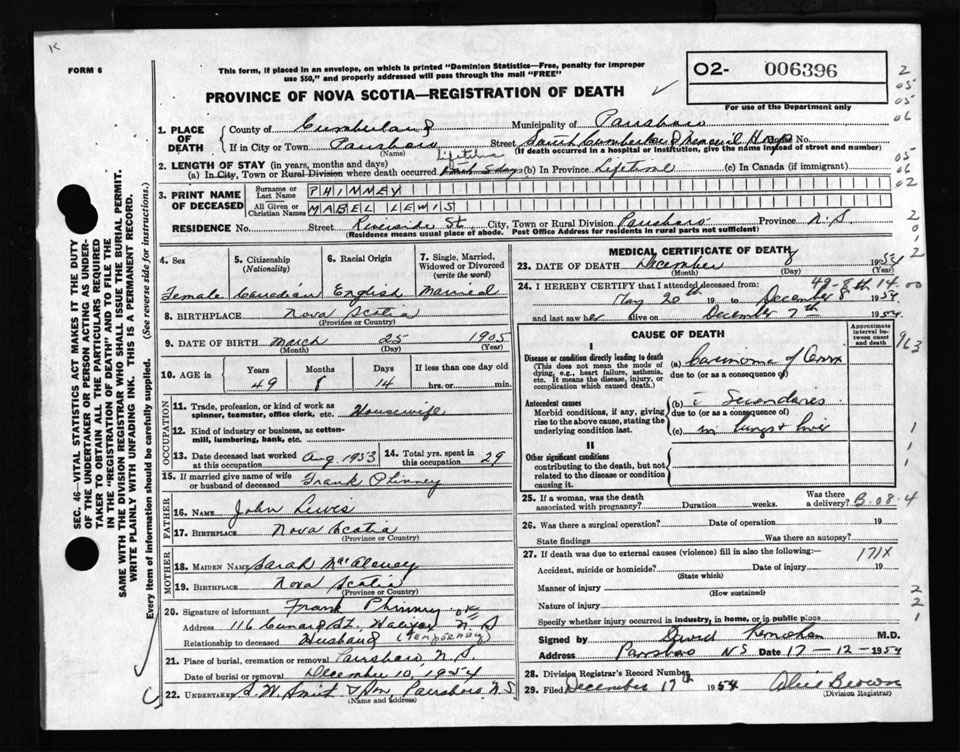 K
FORM 6
This form, if placed in an envelope, on which is printed "Dominion Statistics—Free, penalty for improper
use $50," and properly addressed will pass through the mail "FREE"
PROVINCE OF NOVA SCOTIA—REGISTRATION OF DEATH
O2- 006396
For use of the Department only
1. PLACE OF DEATH
County of Cumberland Municipality of Parrsboro
If in City or Town Parrsboro Street South Cumberland Memorial Hosp No.
(Name) (If death occurred in a hospital or institution, give the name instead of street and number)
2. LENGTH OF STAY (in years, months and days)
Lifetime
(a) In City, Town or Rural Division where death occurred 5 days (b) In Province Lifetime (c) In Canada (if immigrant)
3. PRINT NAME OF DECEASED
Surname or Last Name PHINNEY
All Given or Christian Names MABEL LEWIS
RESIDENCE No. Street Riverside St. City, Town or Rural Division Parrsboro Province N.S.
(Residence means usual place of abode. Post Office Address for residents in rural parts not sufficient)
4. Sex Female
5. Citizenship (Nationality) Canadian
6. Racial Origin English
7. Single, Married, Widowed or Divorced (write the word) Married
8. BIRTHPLACE Nova Scotia
(Province or Country)
9. DATE OF BIRTH March 25 1905
(Month) (Day) (Year)
10. AGE in Years Months Days If less than one day old
49 8 14 hrs. or min.
OCCUPATION
11. Trade, profession, or kind of work as spinner, teamster, office clerk, etc. Housewife
12. Kind of industry or business, as cotton-mill, lumbering, bank, etc.
13. Date deceased last worked at this occupation Aug. 1953
14. Total yrs. spent in this occupation 29
15. If married give name of wife or husband of deceased Frank Phinney
FATHER
16. NAME John Lewis
17. BIRTHPLACE Nova Scotia
(Province or Country)
MOTHER
18. MAIDEN NAME Sarah McAleney
19. BIRTHPLACE Nova Scotia
(Province or Country)
20. Signature of informant Frank Phinney OK
Address 116 Cunard St. Halifax N.S
Relationship to deceased Husband (TEMPORARY)
21. Place of burial, cremation or removal Parrsboro, N.S
Date of burial or removal December 10, 1954
22. UNDERTAKER S.W. Smith & Son, Parrsboro N.S
(Name and address)
MEDICAL CERTIFICATE OF DEATH
23. DATE OF DEATH December 8 1954
(Month) (Day) (Year)
49-8-14
24. I HEREBY CERTIFY that I attended deceased from:
May 20th 19 to December 8 1954
and last saw her alive on December 7th 1954
CAUSE OF DEATH
Approximate interval between onset and death
I
Disease or condition directly leading to death
(This does not mean the mode of dying, e.g., heart failure, asthenia, etc. It means the disease, injury, or complication which caused death.)
(a) Carcinoma of Cervix
due to (or as a consequence of)
Antecedent causes
Morbid conditions, if any, giving rise to the above cause, stating the underlying condition last.
(b) c Secondaries
due to (or as a consequence of)
(c) in lungs + liver
II
Other significant conditions
contributing to the death, but not related to the disease or condition causing it.
25. If a woman, was the death associated with pregnancy? Duration weeks. Was there a delivery? B.08.4
26. Was there a surgical operation? Date of operation 19
State findings Was there an autopsy?
27. If death was due to external causes (violence) fill in also the following:— 171X
Accident, suicide or homicide? Date of injury 19
(State which)
Manner of injury
(How sustained)
Nature of injury
Specify whether injury occurred in industry, in home, or in public place
Signed by David Kernohan M.D.
Address Parrsboro NS Date 17-12-1954
28. Division Registrar's Record Number
29. Filed December 17th 1954 Alice Brown
(Division Registrar)
SEC. 46—VITAL STATISTICS ACT MAKES IT THE DUTY
OF THE UNDERTAKER OR PERSON ACTING AS UNDER-
TAKER TO OBTAIN ALL THE PARTICULARS REQUIRED
IN THE "REGISTRATION OF DEATH" AND TO FILE THE
SAME WITH THE DIVISION REGISTRAR WHO SHALL ISSUE THE BURIAL PERMIT.
WRITE PLAINLY WITH UNFADING INK. THIS IS A PERMANENT RECORD.
Every item of information should be carefully supplied. (See reverse side for instructions.)
2
05
05
06
05
06
02
2
0
1
2
2
00
963
1
1
1
2
2
1